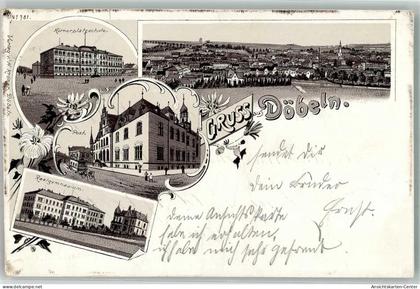 No 781.
Körnerplatzschule.
Post.
Realgymnasium.
GRUSS aus Döbeln.
sendet dir
dein Bruder
Ernst.
deine Ansichtskarte
habe ich erhalten,
ich habe mich sehr gefreut
Ansichtskarten-Center